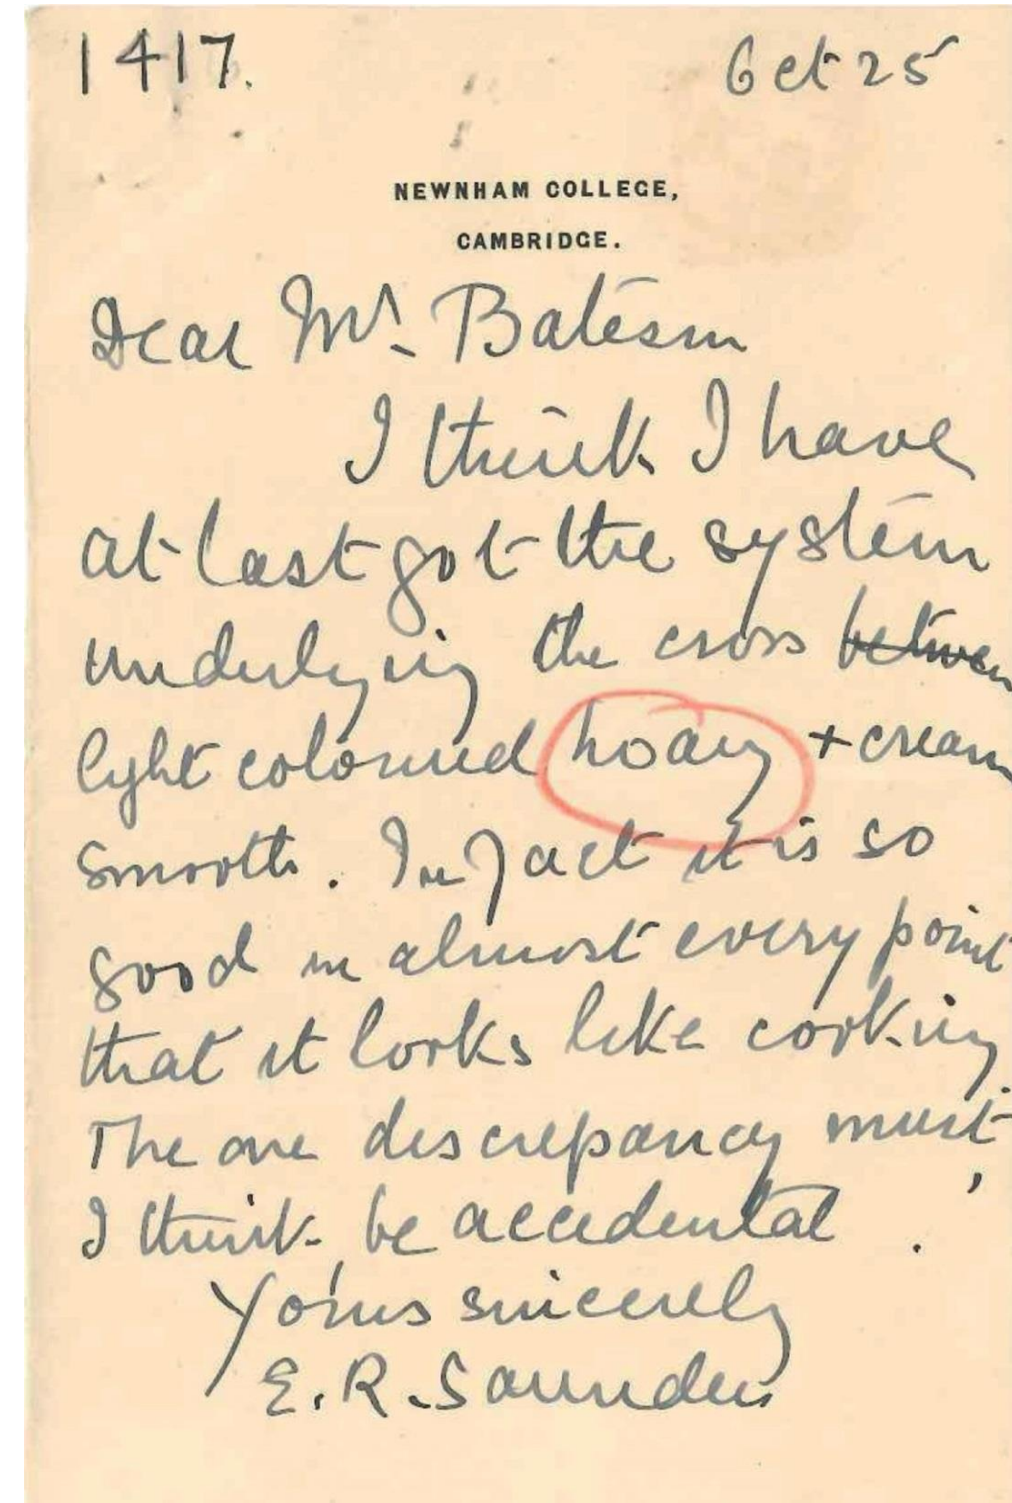 1417.
Oct 25
NEWNHAM COLLEGE,
CAMBRIDGE.
Dear Mr. Bateson
I think I have
at last got the system
underlying the cross between
light coloured hoary + cream
smooth. In fact it is so
good in almost every point
that it looks like cooking.
The one discrepancy must,
I think, be accidental.
Yours sincerely
E. R. Saunders